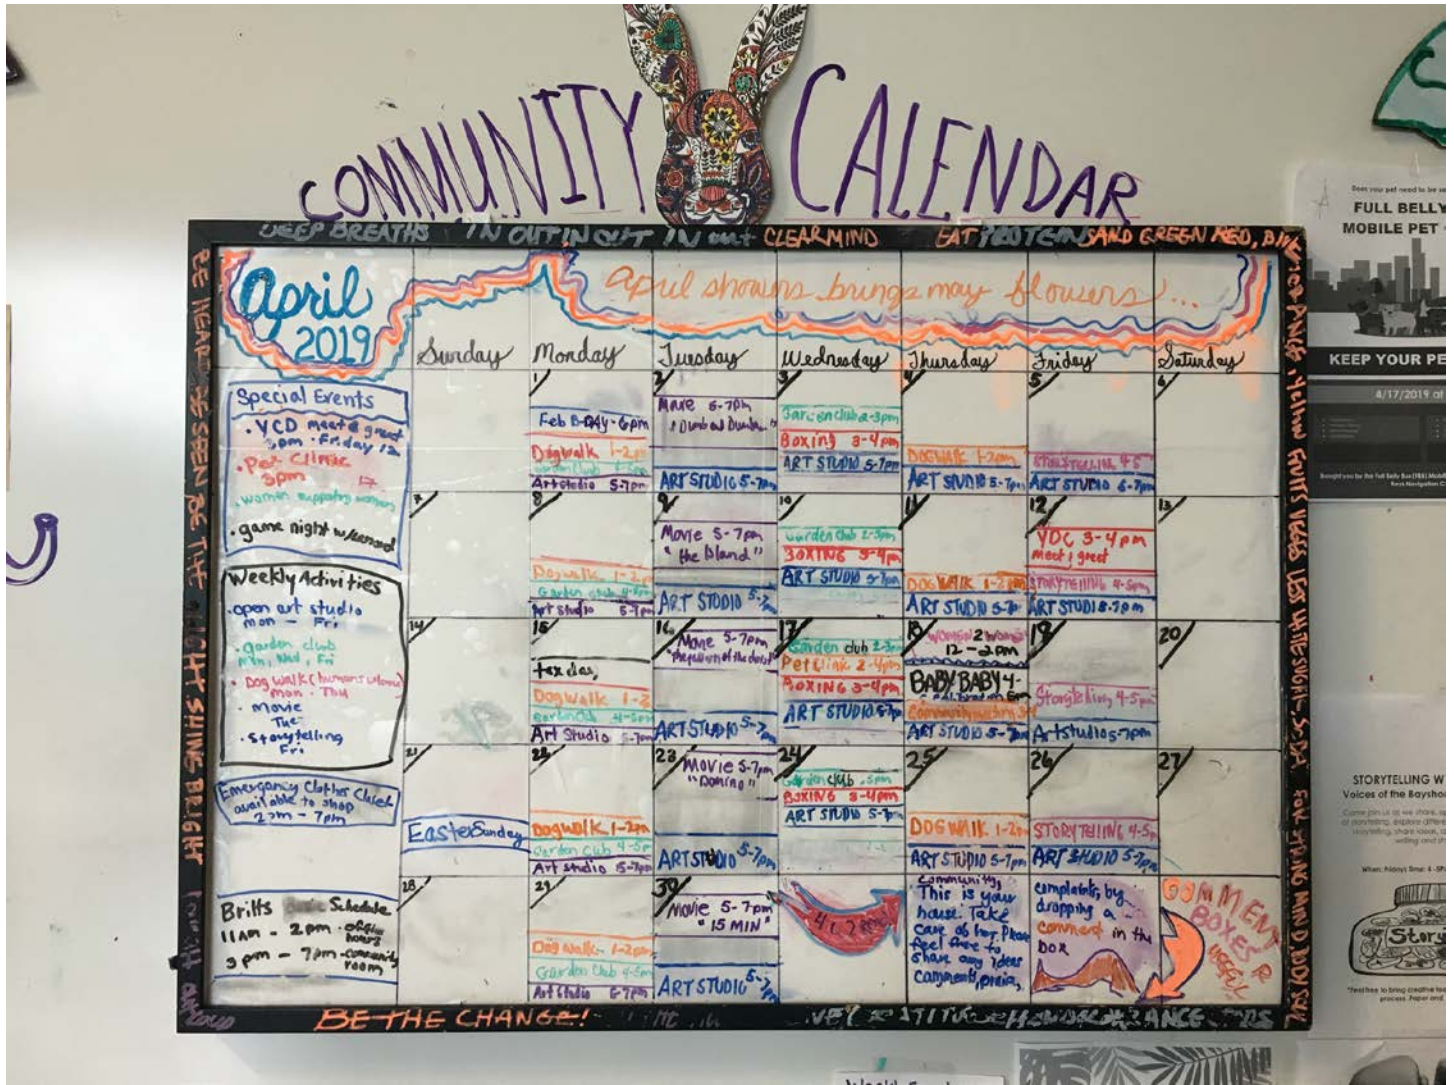 COMMUNITY CALENDAR
DEEP BREATHS IN OUT IN OUT IN OUT CLEAR MIND EAT PROTEINS AND GREEN RED,
BE HEARD BE SEEN BE THE LIGHT SHING BRIGHT
april
2019
april showers brings may flowers...
Sunday Monday Tuesday Wednesday Thursday Friday Saturday
Special Events
• YCD meet & greet
3pm - Friday 12
• Pet Clinic
3pm 17
• women supporting women
• game night w/
Weekly Activities
• open art studio
mon - Fri
• garden club
Mon, Wed, Fri
• Dog walk (humans
mon - Thu
• movie
Tue
• storytelling
Fri
Emergency Clothes Closet
available to shop
2pm - 7pm
Britts Schedule
11am - 2pm - office
hours
3pm - 7pm - community
room
1
Feb B-DAY - 6pm
Dogwalk 1-2pm
Garden Club 4-5pm
Art studio 5-7pm
2
Movie 5-7pm
"Dumb and Dumber"
ART STUDIO 5-7pm
3
Garden club 2-3pm
Boxing 3-4pm
ART STUDIO 5-7pm
4
DOGWALK 1-2pm
ART STUDIO 5-7pm
5
STORYTELLING 4-5
ART STUDIO 5-7pm
6
7
8
Dogwalk 1-2pm
Garden club 4-5pm
Art Studio 5-7pm
9
Movie 5-7pm
"the Island"
ART STUDIO 5-7pm
10
Garden club 2-3pm
BOXING 3-4pm
ART STUDIO 5-7pm
11
DOG WALK 1-2pm
ART STUDIO 5-7pm
12
YDC 3-4pm
meet & greet
STORYTELLING 4-5pm
ART STUDI 5-7pm
13
14
15
tax day,
DOGWALK 1-2
Garden Club 4-5pm
Art Studio 5-7pm
16
Movie 5-7pm
ART STUDIO 5-7pm
17
Garden club 2-3pm
Pet Clinic 2-4pm
BOXING 3-4pm
ART STUDIO 5-7pm
18
WOMEN 2 Women
12-2pm
BABY BABY 4-
Community meeting
ART STUDIO 5-7pm
19
Storytelling 4-5pm
Artstudio 5-7pm
20
21
Easter Sunday
22
Dogwalk 1-2pm
Garden Club 4-5p
Art studio 5-7pm
23
Movie 5-7pm
"Domino"
ART STUDIO 5-7pm
24
Garden club
BOXING 3-4pm
ART STUDIO 5-7pm
25
DOG WALK 1-2pm
ART STUDIO 5-7pm
26
STORYTELLING 4-5pm
ART STUDIO 5-7pm
27
28
29
Dog walk 1-2pm
Garden Club 4-5pm
Art Studio 5-7pm
30
Movie 5-7pm
"15 MIN"
ART STUDIO 5-7pm
Community,
This is your
house. Take
care of her. Please
feel free to
share any ideas
comments, praise,
complaints, by
dropping a
comment in the
box
COMMENT
BOXES R
USEFUL
BE THE CHANGE!
Does your pet need to be
FULL BELLY
MOBILE PET
KEEP YOUR PE
4/17/2019 at
STORYTELLING W
Voices of the Baysho
When: Fridays Time: 4-5P
Story